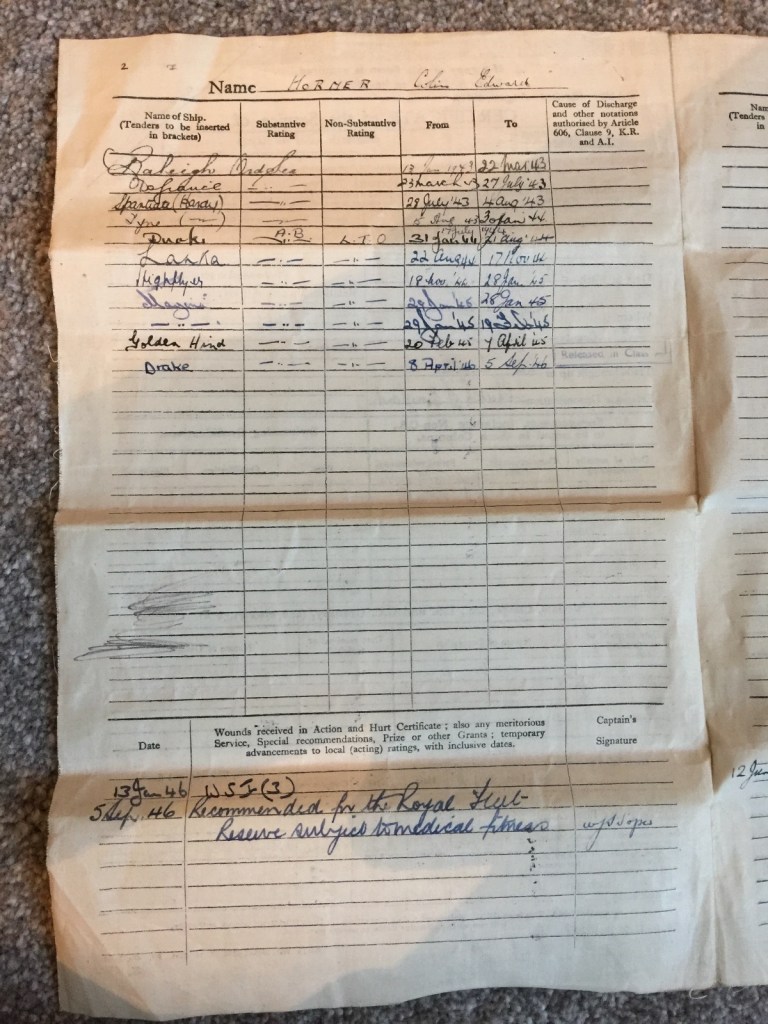 2
Name HORNER Colin Edward
Name of Ship. (Tenders to be inserted in brackets) Substantive Rating Non-Substantive Rating From To Cause of Discharge and other notations authorised by Article 606, Clause 9, K.R. and A.I.
Raleigh Ord Sea 13 Jan 1943 22 Mar 43
Defiance —"— 23 March 43 27 July 43
Spartiate (Hardy) —"— 28 July '43 4 Aug '43
Tyne ( —"— ) —"— 5 Aug 43 30 Jan 44
Drake A.B L.T.O 31 Jan 44 21 Aug 44
Lanka —"— —"— 22 Aug 44 17 Nov 44
Highflyer —"— —"— 18 Nov. '44 28 Jan. '45
—"— —"— 28 Jan 45
—"— —"— —"— 29 Jan '45 19 Feb '45
Golden Hind —"— —"— 20 Feb 45 7 April '45
Released in Class
Drake —"— —"— 8 April '46 5 Sep. 46
Date Wounds received in Action and Hurt Certificate ; also any meritorious Service, Special recommendations, Prize or other Grants ; temporary advancements to local (acting) ratings, with inclusive dates. Captain's Signature
13 Jan 46
5 Sep. 46 Recommended for the Royal Fleet
Reserve subject to medical fitness
Nam
(Tenders
in
12 Jun